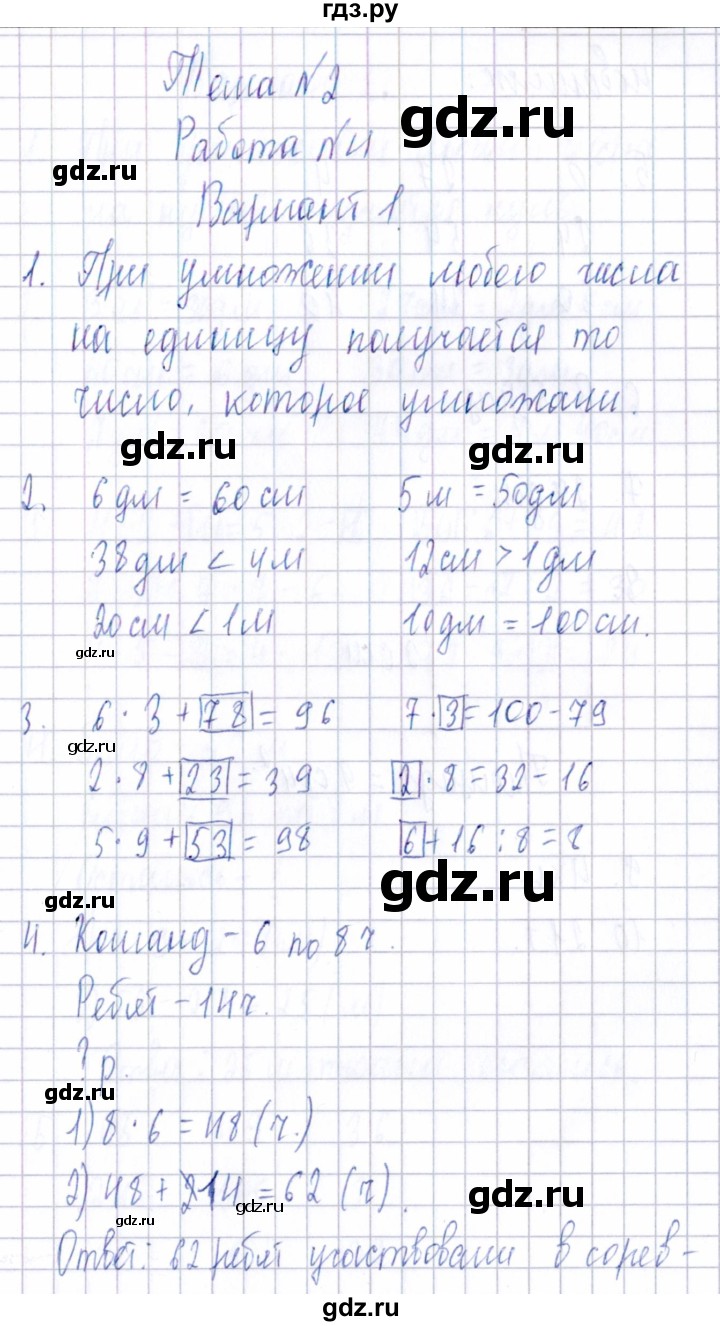 гдз.ру
Тема №2
gdz.ru
Работа №4
gdz.ru
Вариант 1.
1. При умножении любого числа
на единицу получается то
число, которое умножали.
gdz.ru gdz.ru
2. 6 дм = 60 см 5 м = 50 дм
38 дм < 4 м 12 см > 1 дм
20 см < 1 м 10 дм = 100 см.
gdz.ru
3. 6 · 3 + 78 = 96 7 · 3 = 100 - 79
gdz.ru
2 · 8 + 23 = 39 2 · 8 = 32 - 16
5 · 9 + 53 = 98 6 + 16 : 8 = 8
gdz.ru gdz.ru
4. Команд - 6 по 8 ч.
Ребят - 14 ч.
? р.
gdz.ru
1) 8 · 6 = 48 (ч.)
2) 48 + 14 = 62 (ч).
gdz.ru
gdz.ru gdz.ru
Ответ: 62 ребят участвовали в сорев-
gdz.ru